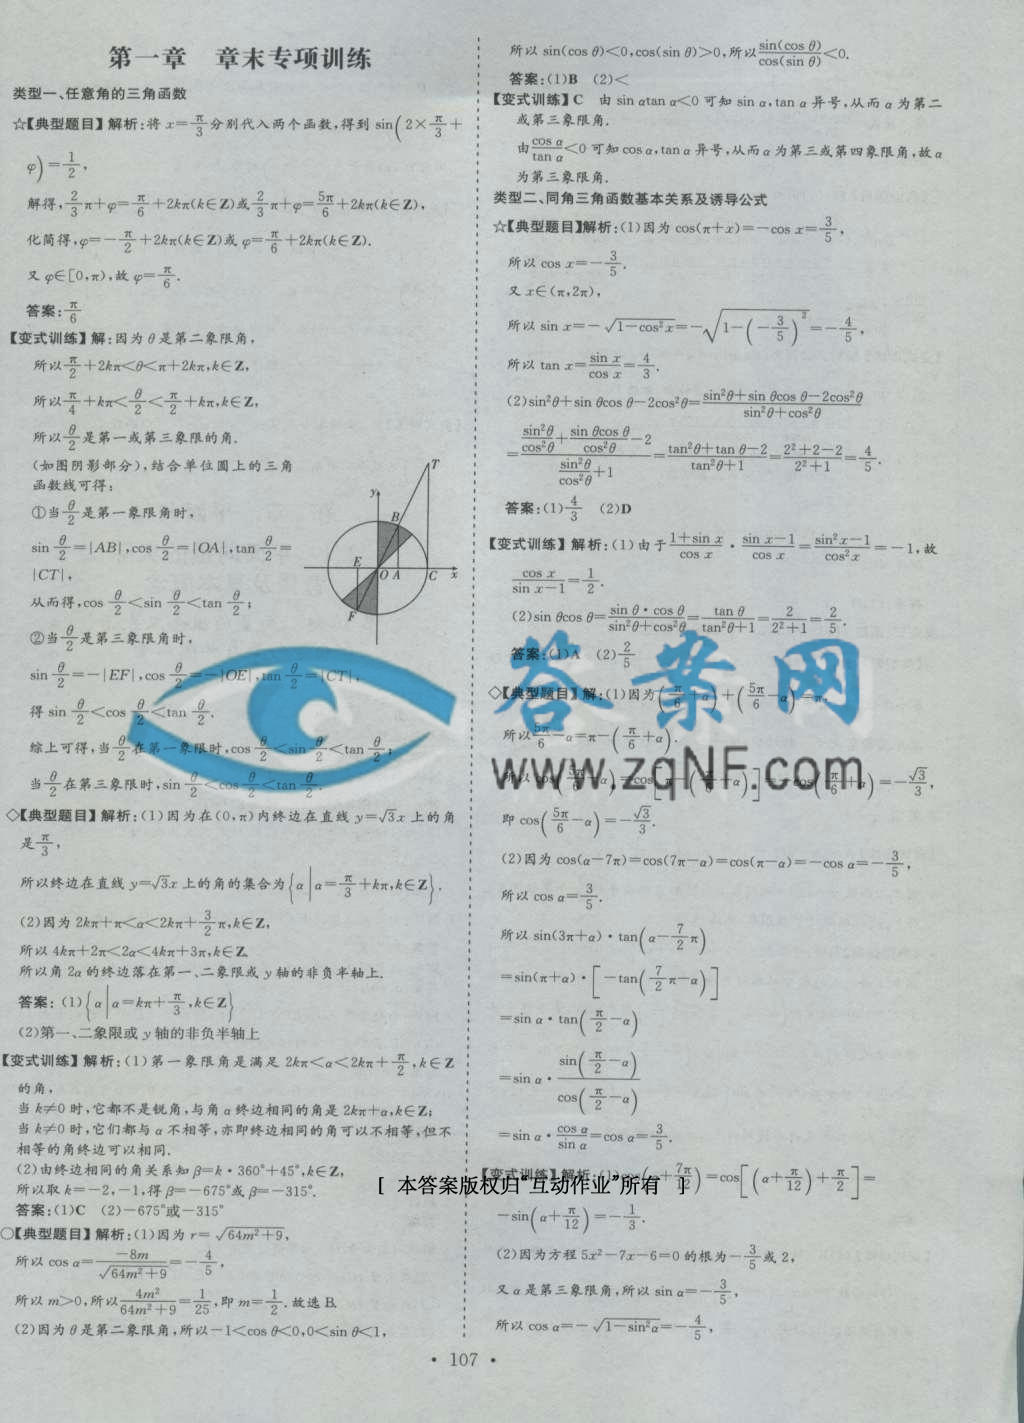 第一章 章末专项训练
类型一、任意角的三角函数
☆【典型题目】解析:将 x=π/3 分别代入两个函数,得到 sin(2×π/3+
φ)=1/2,
解得,2/3π+φ=π/6+2kπ(k∈Z)或2/3π+φ=5π/6+2kπ(k∈Z),
化简得,φ=-π/2+2kπ(k∈Z)或 φ=π/6+2kπ(k∈Z).
又 φ∈[0,π),故 φ=π/6.
答案:π/6
【变式训练】解:因为 θ 是第二象限角,
所以π/2+2kπ<θ<π+2kπ,k∈Z,
所以π/4+kπ<θ/2<π/2+kπ,k∈Z,
所以θ/2是第一或第三象限的角.
(如图阴影部分),结合单位圆上的三角
函数线可得:
①当θ/2是第一象限角时,
sin θ/2=|AB|,cos θ/2=|OA|,tan θ/2=
|CT|,
从而得,cos θ/2<sin θ/2<tan θ/2;
②当θ/2是第三象限角时,
sin θ/2=-|EF|,cos θ/2=-|OE|,tan θ/2=|CT|,
得 sin θ/2<cos θ/2<tan θ/2.
综上可得,当θ/2在第一象限时,cos θ/2<sin θ/2<tan θ/2;
当θ/2在第三象限时,sin θ/2<cos θ/2<tan θ/2.
y
T
B
E
O
A
C
x
F
◇【典型题目】解析:(1)因为在(0,π)内终边在直线 y=√3x 上的角
是π/3,
所以终边在直线 y=√3x 上的角的集合为{α|α=π/3+kπ,k∈Z}.
(2)因为 2kπ+π<α<2kπ+3/2π,k∈Z,
所以 4kπ+2π<2α<4kπ+3π,k∈Z.
所以角 2α 的终边落在第一、二象限或 y 轴的非负半轴上.
答案:(1){α|α=kπ+π/3,k∈Z}
(2)第一、二象限或 y 轴的非负半轴上
【变式训练】解析:(1)第一象限角是满足 2kπ<α<2kπ+π/2,k∈Z
的角,
当 k≠0 时,它都不是锐角,与角 α 终边相同的角是 2kπ+α,k∈Z;
当 k≠0 时,它们都与 α 不相等,亦即终边相同的角可以不相等,但不
相等的角终边可以相同.
(2)由终边相同的角关系知 β=k·360°+45°,k∈Z,
所以取 k=-2,-1,得 β=-675°或 β=-315°.
答案:(1)C (2)-675°或-315°
○【典型题目】解析:(1)因为 r=√(64m²+9),
所以 cos α=-8m/√(64m²+9)=-4/5,
所以 m>0,所以4m²/(64m²+9)=1/25,即 m=1/2.故选 B.
(2)因为 θ 是第二象限角,所以-1<cos θ<0,0<sin θ<1,
所以 sin(cos θ)<0,cos(sin θ)>0,所以sin(cos θ)/cos(sin θ)<0.
答案:(1)B (2)<
【变式训练】C 由 sin αtan α<0 可知 sin α,tan α 异号,从而 α 为第二
或第三象限角.
由cos α/tan α<0 可知 cos α,tan α 异号,从而 α 为第三或第四象限角,故 α
为第三象限角.
类型二、同角三角函数基本关系及诱导公式
☆【典型题目】解析:(1)因为 cos(π+x)=-cos x=3/5,
所以 cos x=-3/5.
又 x∈(π,2π),
所以 sin x=-√(1-cos²x)=-√(1-(-3/5)²)=-4/5,
所以 tan x=sin x/cos x=4/3.
(2)sin²θ+sin θcos θ-2cos²θ=(sin²θ+sin θcos θ-2cos²θ)/(sin²θ+cos²θ)
=(sin²θ/cos²θ+sin θcos θ/cos²θ-2)/(sin²θ/cos²θ+1)=(tan²θ+tan θ-2)/(tan²θ+1)=(2²+2-2)/(2²+1)=4/5.
答案:(1)4/3 (2)D
【变式训练】解析:(1)由于(1+sin x)/cos x·(sin x-1)/cos x=(sin²x-1)/cos²x=-1,故
cos x/(sin x-1)=1/2.
(2)sin θcos θ=sin θ·cos θ/(sin²θ+cos²θ)=tan θ/(tan²θ+1)=2/(2²+1)=2/5.
答案:(1)A (2)2/5
◇【典型题目】解:(1)因为(π/6+α)+(5π/6-α)=π,
所以5π/6-α=π-(π/6+α).
所以 cos(5π/6-α)=cos[π-(π/6+α)]=-cos(π/6+α)=-√3/3,
即 cos(5π/6-α)=-√3/3.
(2)因为 cos(α-7π)=cos(7π-α)=cos(π-α)=-cos α=-3/5,
所以 cos α=3/5.
所以 sin(3π+α)·tan(α-7/2π)
=sin(π+α)·[-tan(7/2π-α)]
=sin α·tan(π/2-α)
=sin α·sin(π/2-α)/cos(π/2-α)
=sin α·cos α/sin α=cos α=3/5.
【变式训练】解析:(1)cos(α+7π/12)=cos[(α+π/12)+π/2]=
-sin(α+π/12)=-1/3.
(2)因为方程 5x²-7x-6=0 的根为-3/5或 2,
又 α 是第三象限角,所以 sin α=-3/5,
所以 cos α=-√(1-sin²α)=-4/5,
答案网
www.zqNF.com
[ 本答案版权归“互动作业”所有 ]
• 107 •